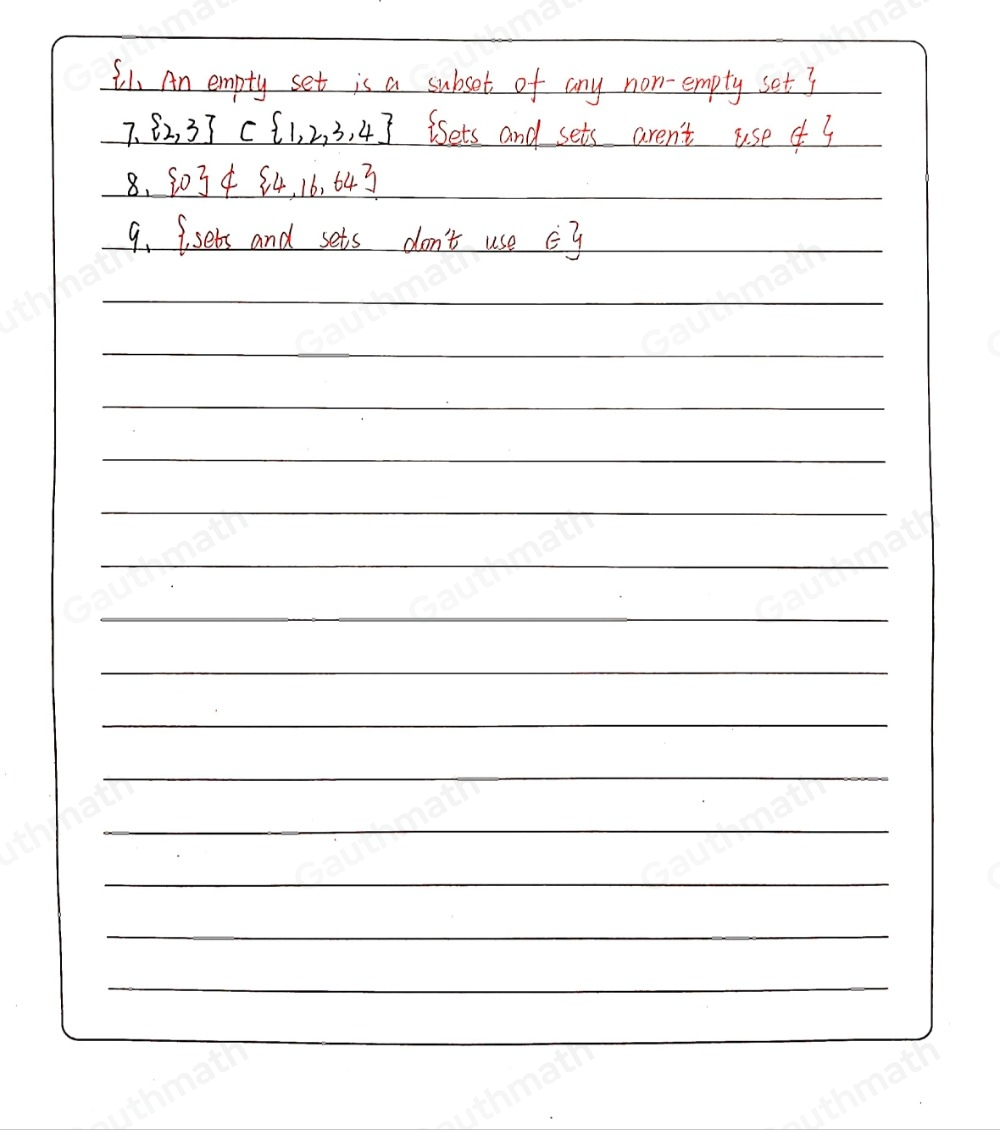 {1. An empty set is a subset of any non-empty set}
7. {2,3} ⊂ {1,2,3,4} {Sets and sets aren't use ∉}
8. {0} ⊄ {4,16,64}
9. {sets and sets don't use ∈}